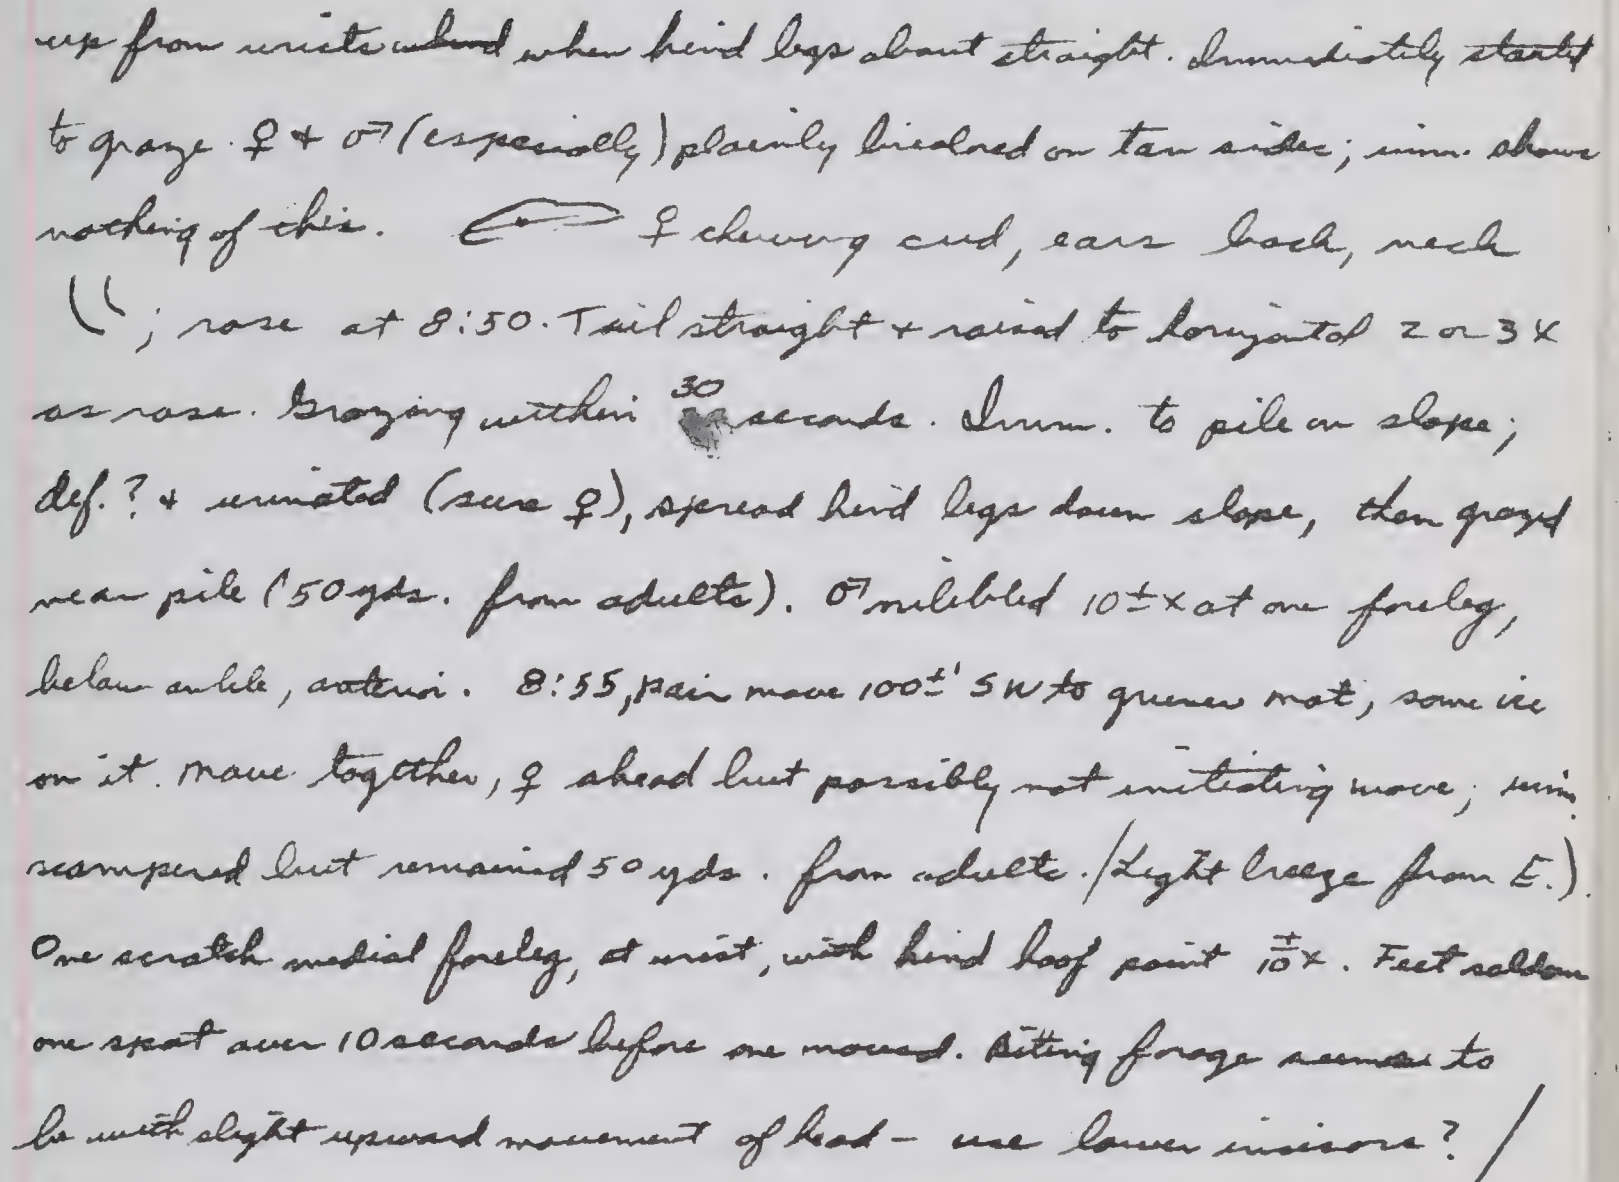 up from wrists when hind legs about straight. Immediately started
to graze. ♀ + ♂ (especially) plainly bicolored on tan sides; imm. shows
nothing of this. ♀ chewing cud, ears back, neck
; rose at 8:50. Tail straight + raised to horizontal 2 or 3 x
as rose. Grazing within 30 seconds. Imm. to pile on slope;
def.? + urinated (sure ♀), spread hind legs down slope, then grazed
near pile (50 yds. from adults). ♂ nibbled 10± x at one foreleg,
below ankle, anterior. 8:55, pair move 100±' SW to greener mat, some ice
on it. Move together, ♀ ahead but possibly not initiating move; imm.
scampered but remained 50 yds. from adults. (Light breeze from E.).
One scratch medial foreleg, at wrist, with hind hoof point ±10 x. Feet seldom
one spot over 10 seconds before one moved. Biting forage seems to
be with slight upward movement of head – use lower incisors? /